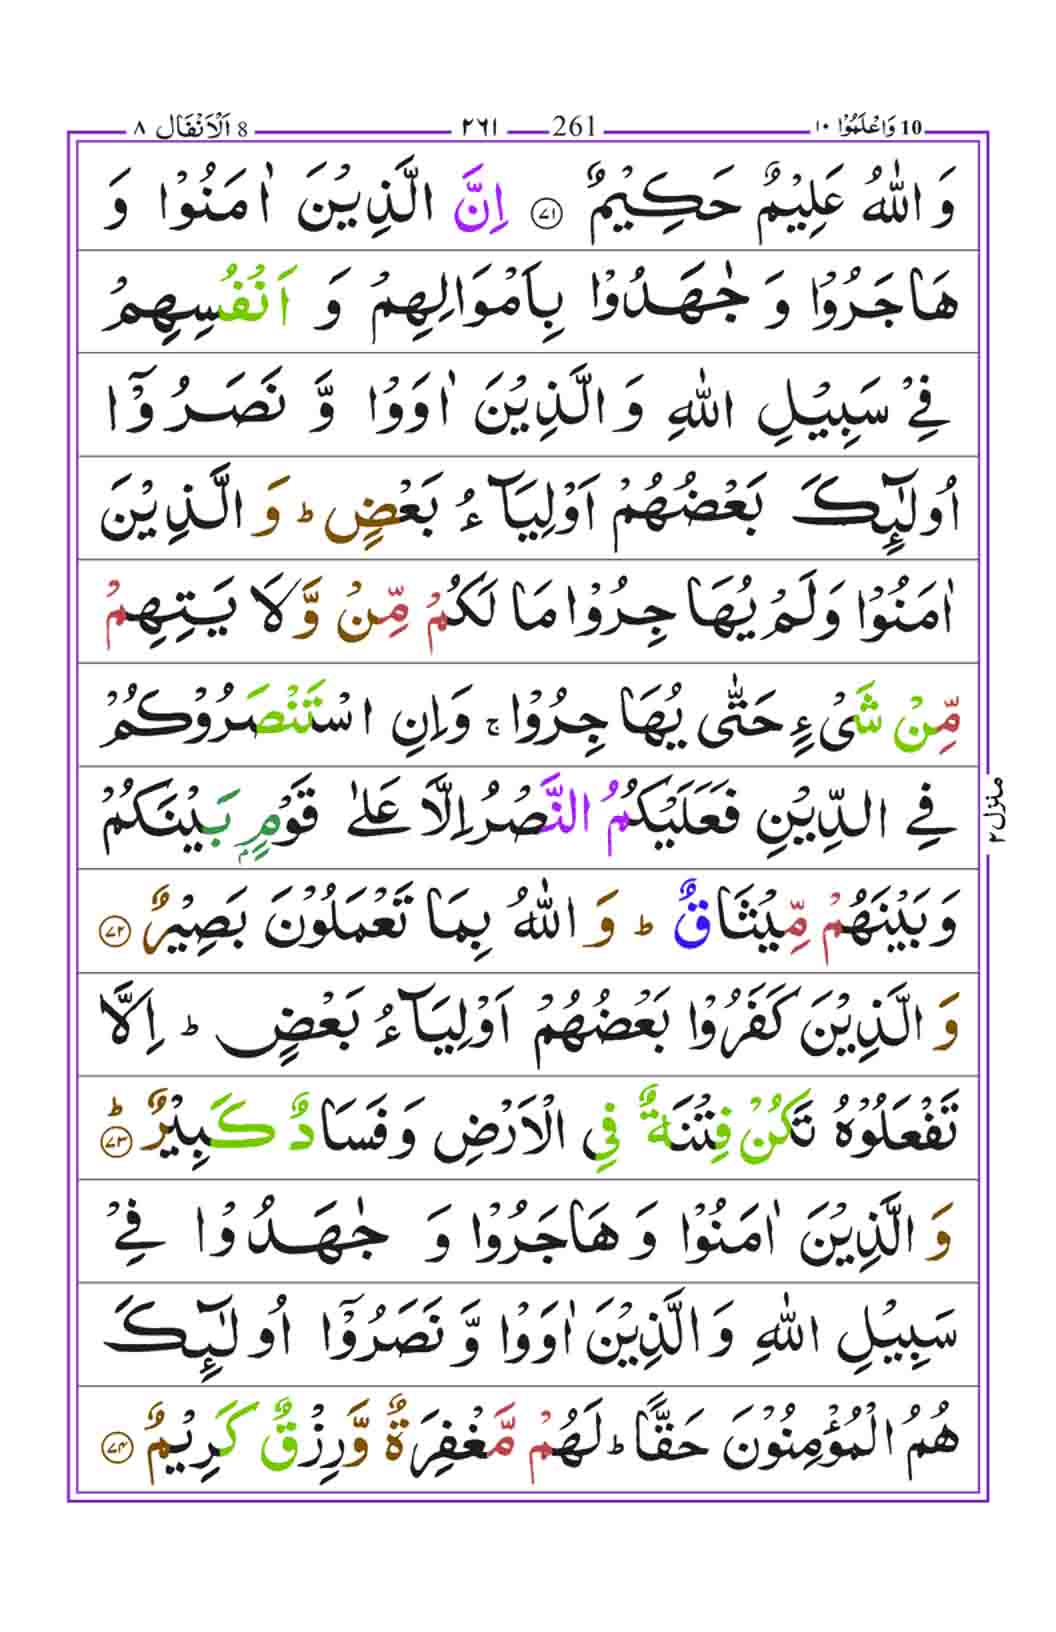 8 اَلْاَنْفَال ٨ ٢٦١ 261 10 وَاعْلَمُوْا ١٠
وَ اللّٰهُ عَلِيْمٌ حَكِيْمٌ ﴿٧١﴾ اِنَّ الَّذِيْنَ اٰمَنُوْا وَ
هَاجَرُوْا وَ جٰهَدُوْا بِاَمْوَالِهِمْ وَ اَنْفُسِهِمْ
فِيْ سَبِيْلِ اللّٰهِ وَ الَّذِيْنَ اٰوَوْا وَّ نَصَرُوْۤا
اُولٰٓئِكَ بَعْضُهُمْ اَوْلِيَآءُ بَعْضٍ ؕ وَ الَّذِيْنَ
اٰمَنُوْا وَلَمْ يُهَاجِرُوْا مَا لَكُمْ مِّنْ وَّلَا يَتِهِمْ
مِّنْ شَيْءٍ حَتّٰى يُهَاجِرُوْا ۚ وَاِنِ اسْتَنْصَرُوْكُمْ
فِي الدِّيْنِ فَعَلَيْكُمُ النَّصْرُ اِلَّا عَلٰى قَوْمٍۭ بَيْنَكُمْ
وَبَيْنَهُمْ مِّيْثَاقٌ ؕ وَ اللّٰهُ بِمَا تَعْمَلُوْنَ بَصِيْرٌ ﴿٧٢﴾
وَ الَّذِيْنَ كَفَرُوْا بَعْضُهُمْ اَوْلِيَآءُ بَعْضٍ ؕ اِلَّا
تَفْعَلُوْهُ تَكُنْ فِتْنَةٌ فِي الْاَرْضِ وَفَسَادٌ كَبِيْرٌ ؕ﴿٧٣﴾
وَ الَّذِيْنَ اٰمَنُوْا وَ هَاجَرُوْا وَ جٰهَدُوْا فِيْ
سَبِيْلِ اللّٰهِ وَ الَّذِيْنَ اٰوَوْا وَّ نَصَرُوْۤا اُولٰٓئِكَ
هُمُ الْمُؤْمِنُوْنَ حَقًّا ؕ لَهُمْ مَّغْفِرَةٌ وَّرِزْقٌ كَرِيْمٌ ﴿٧٤﴾
منزل ٢